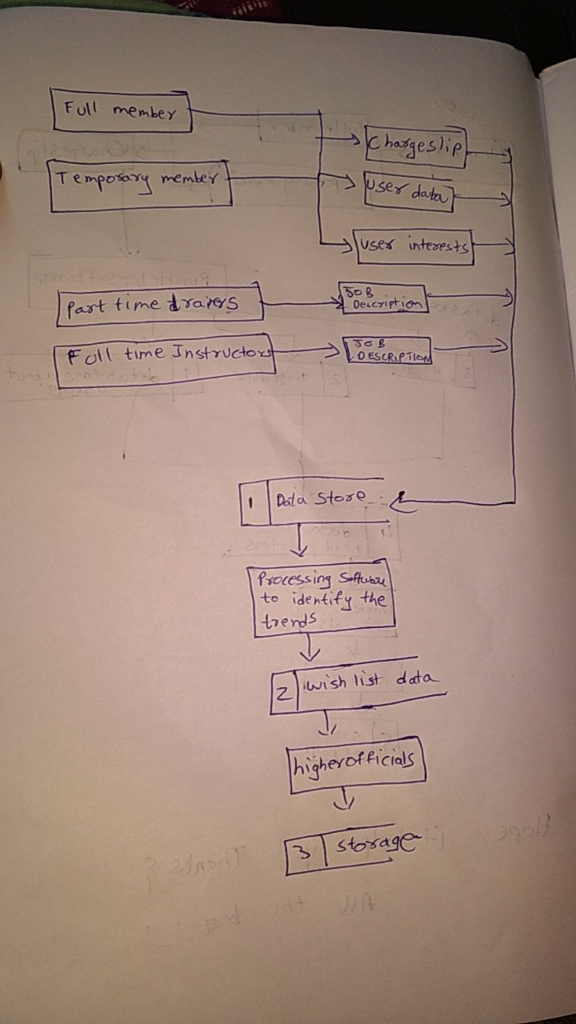 Full member
Chargeslip
Temporary member
User data
User interests
Part time trainers
JOB
Description
Full time Instructors
JOB
DESCRIPTION
1 Data Store
Processing Software
to identify the
trends
2 wish list data
higher officials
3 Storage